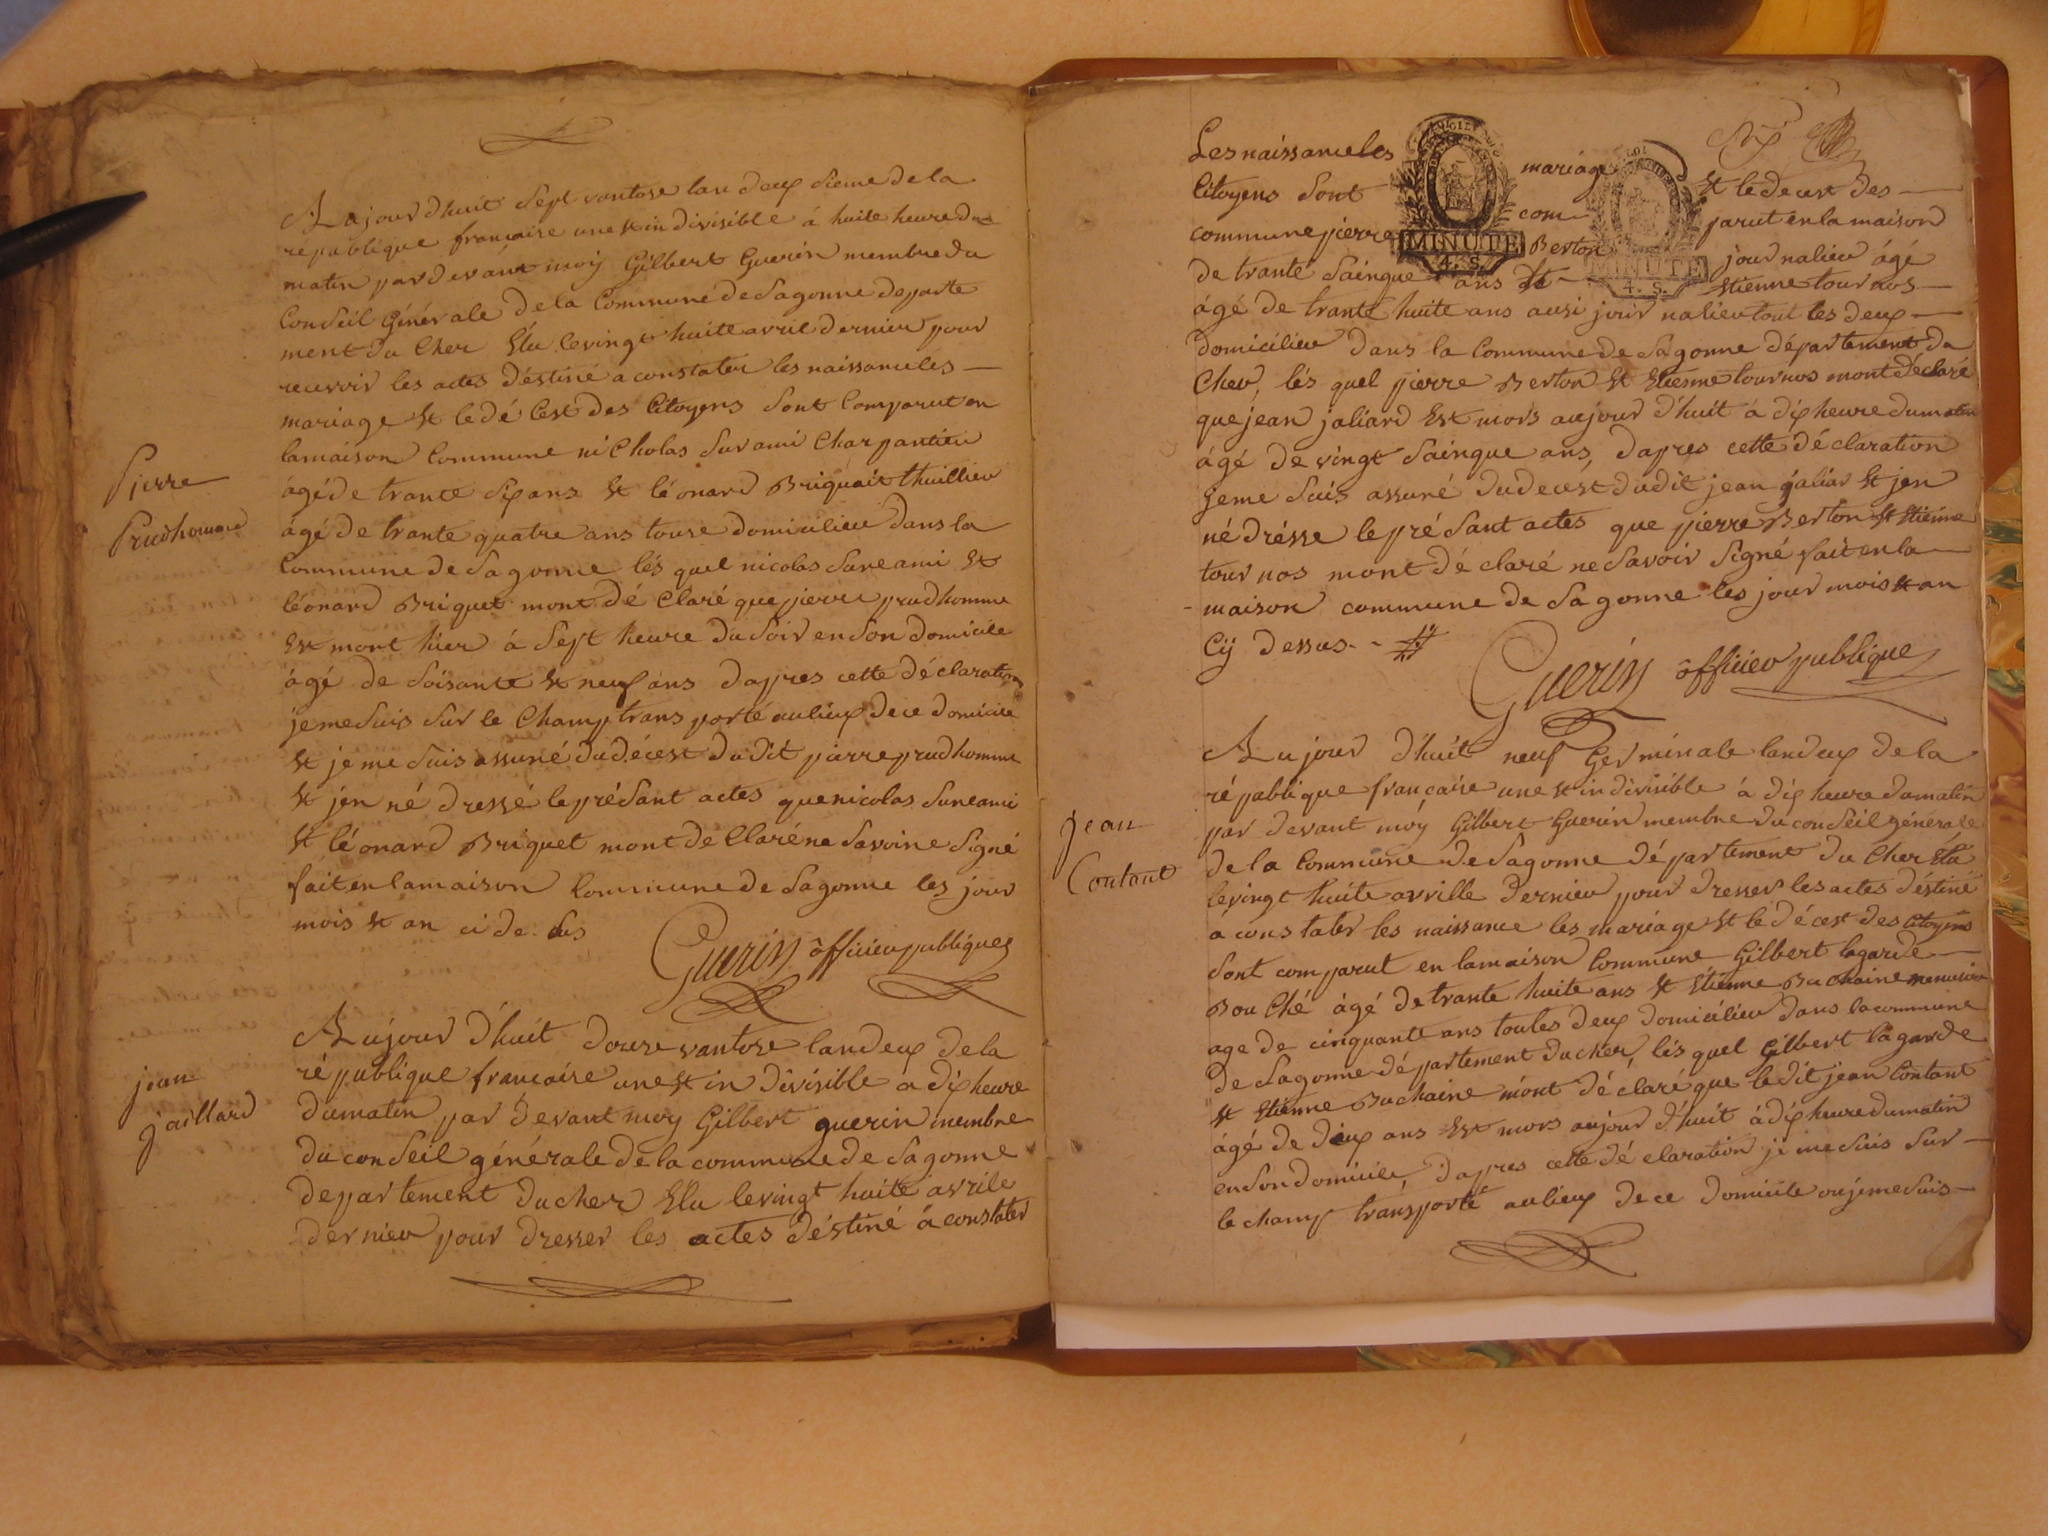 Aujourdhuit Sept vantose lan deux Sieme de la
république francaise une et in divisible á huite heure du
matin pardevant moij Gilbert Guerin membre du
Conseil Générale de la Commune de Sagonne departe
ment du Cher Elu le vingt huite avril dernieu pour
recevoir les actes déstiné a constater les naissance les
mariage et le dé Cest des Citoyens Sont Comparut en
la maison Commune nicholas Surami Charpantieu
ágé de trante Six ans et léonard Briquait thuillieu
ágé de trante quatre ans touse domicilieu dans la
Commune de Sagonne lés quel nicolas Sureami et
léonard Briquet mont dé Claré que pierre prudhomme
Est mort hier á Sept heure du Soir en Son domicile
ágé de Soisante et neuf ans dapres cette déclaration
je me Suis Sur le Champ trans porté au lieux de ce domicile
et je me Suis assuré du décest du dit pierre prudhomme
et jen né dressé le préSant actes que nicolas Sureami
et léonard Briquet mont de Claré ne Savoire Signé
fait en la maison Commune de Sagonne les jour
mois et an ci de Sus
Guerin officieu publique
Pierre
Prudhomme
Aujour d'huit douze vantose lan deux de la
république francaise une et in divisible a dix heure
du matin par devant moy Gilbert guerin membre
du conSeil générale de la commune de Sagonne
departement du cher Elu le vingt huite avrile
dernieu pour dresser les actes déstiné á constater
jean
jaillard
Les naissance les mariage et le decest des
Citoyens Sont com parut en la maison
commune pierre Berton jour nalieu ágé
de trante Sainque ans et Etienne tour nos
ágé de trante huite ans ausi jour nalieu tout les deux
domicilieu dans la Commune de Sagonne département du
Cher, lés quel pierre Berton et Etienne tournos mont déclaré
que jean jaliard Est mors aujour d'huit á dix heure du matin
ágé de vingt Sainque ans, dapres cette déclaration
jeme Suis assuré du decest du dit jean jaliar et jen
né drésse le pré Sant actes que pierre Berton et Etienne
tour nos mont dé claré ne Savoir Signé fait en la
maison commune de Sagonne les jour mois et an
Cij dessus
MINUTE
4. S.
MINUTE
4. S.
Guerin officieu publique
Aujour d'huit neuf Germinale lan deux de la
république francaise une et in divisible á dix heure du matin
par devant moy Gilbert Guerin membre du conSeil générale
de la Commune de Sagonne département du Cher Elu
le vingt huite avrille dernieu pour dresser les actes déstiné
a cons tater les naissance les mariage et le décest des Citoyens
Sont comparut en la maison Commune Gilbert lagarde
Bou Ché ágé de trante huite ans et Etienne Buchaine menusieu
age de cinquante ans toutes deux domicilieu dans la commune
de Sagonne département du cher, lés quel Gilbert lagarde
et Etienne Buchaine mont déclaré que le dit jean Contant
ágé de deux ans Est mors aujour d'huit á dix heure du matin
en Son domicile, dapres cette déclaration je me Suis Sur
le champ transporté au lieux de ce domicile ou je me Suis
jean
Contant